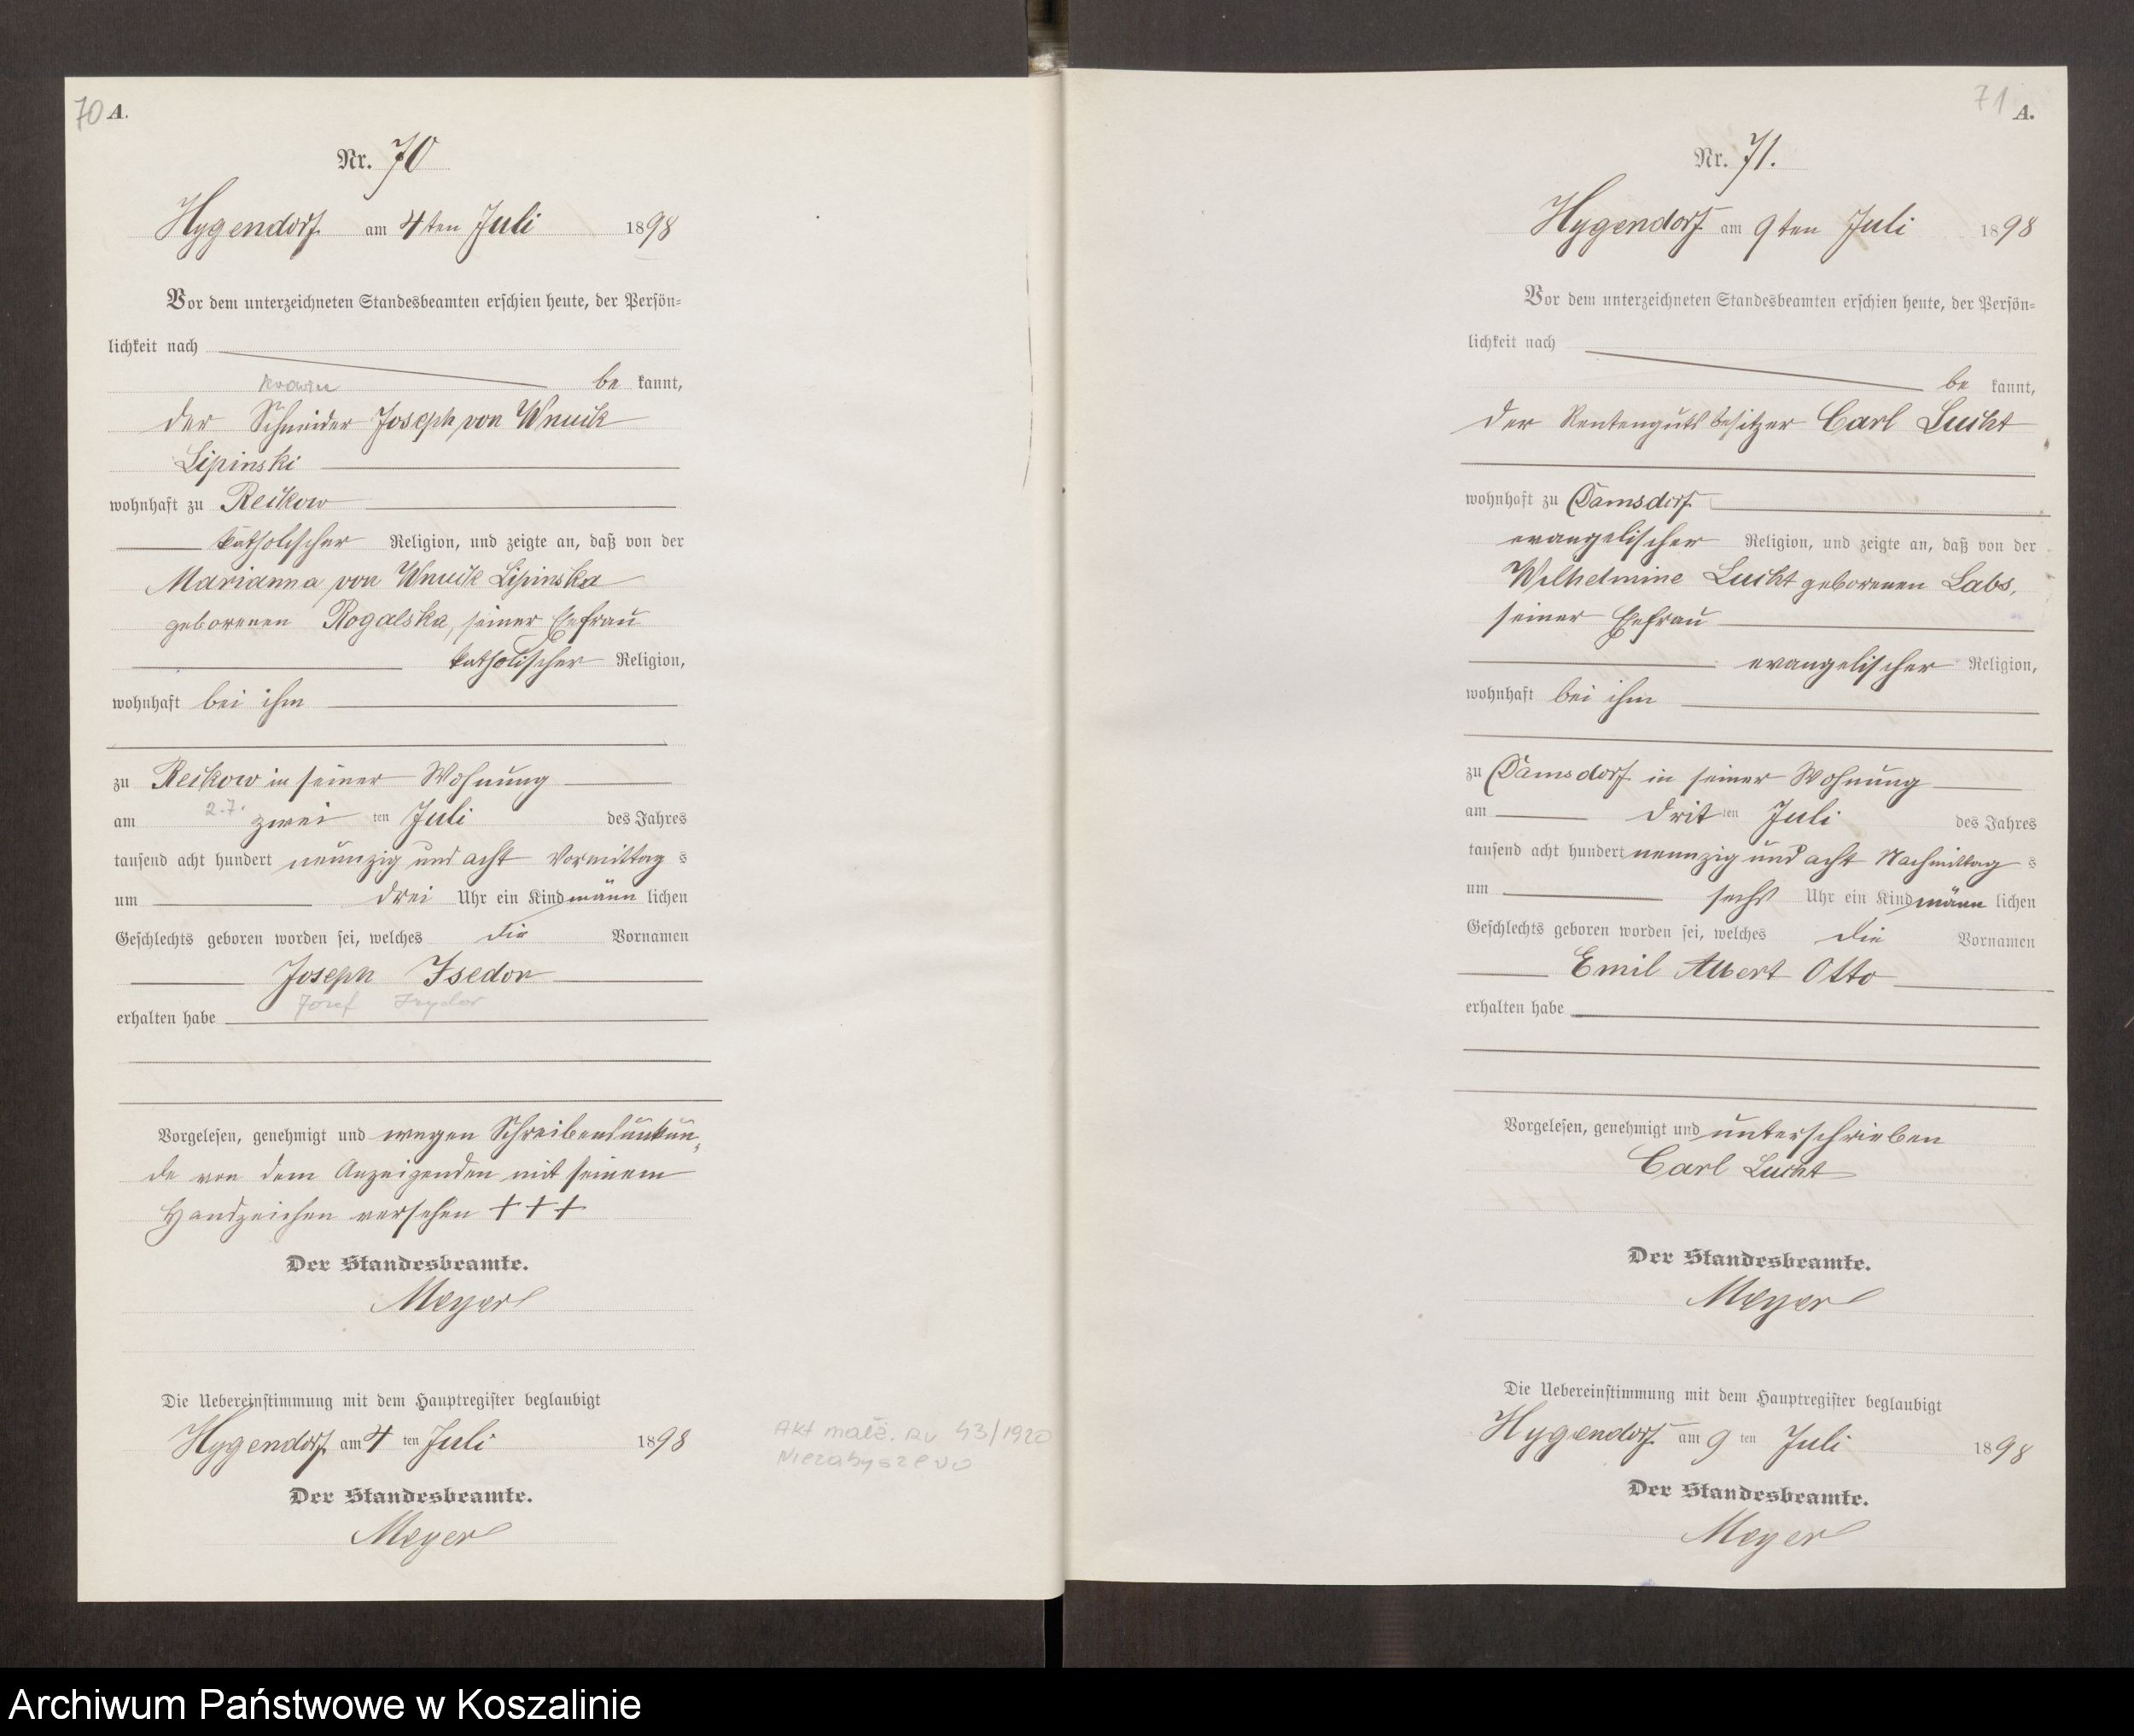 70 A.
Nr. 70
Hygendorf am 4ten Juli 1898
Vor dem unterzeichneten Standesbeamten erschien heute, der Persön-
lichkeit nach
be kannt,
der Schneider Joseph von Wnuck
Lipinski
wohnhaft zu Reckow
katholischer Religion, und zeigte an, daß von der
Marianna von Wnuck Lipinska
geborenen Rogalska, seiner Ehefrau
katholischer Religion,
wohnhaft bei ihm
zu Reckow in seiner Wohnung
2.7.
am zwei ten Juli des Jahres
tausend acht hundert neunzig und acht Vormittag s
um drei Uhr ein Kind männ lichen
Geschlechts geboren worden sei, welches die Vornamen
Joseph Isedor
Józef Izydor
erhalten habe
Vorgelesen, genehmigt und wegen Schreibensunkun-
de von dem Anzeigenden mit seinem
Handzeichen versehen +++
Der Standesbeamte.
Meyer
Die Uebereinstimmung mit dem Hauptregister beglaubigt
Hygendorf am 4 ten Juli 1898
Der Standesbeamte.
Meyer
Akt małż. 43/1920
Niezabyszewo
71 A.
Nr. 71.
Hygendorf am 9ten Juli 1898
Vor dem unterzeichneten Standesbeamten erschien heute, der Persön-
lichkeit nach
be kannt,
der Rentengutsbesitzer Carl Lucht
wohnhaft zu Damsdorf
evangelischer Religion, und zeigte an, daß von der
Wilhelmine Lucht geborenen Labs,
seiner Ehefrau
evangelischer Religion,
wohnhaft bei ihm
zu Damsdorf in seiner Wohnung
am drit ten Juli des Jahres
tausend acht hundert neunzig und acht Nachmittag s
um sechs Uhr ein Kind männ lichen
Geschlechts geboren worden sei, welches die Vornamen
Emil Albert Otto
erhalten habe
Vorgelesen, genehmigt und unterschrieben
Carl Lucht
Der Standesbeamte.
Meyer
Die Uebereinstimmung mit dem Hauptregister beglaubigt
Hygendorf am 9 ten Juli 1898
Der Standesbeamte.
Meyer
Archiwum Państwowe w Koszalinie